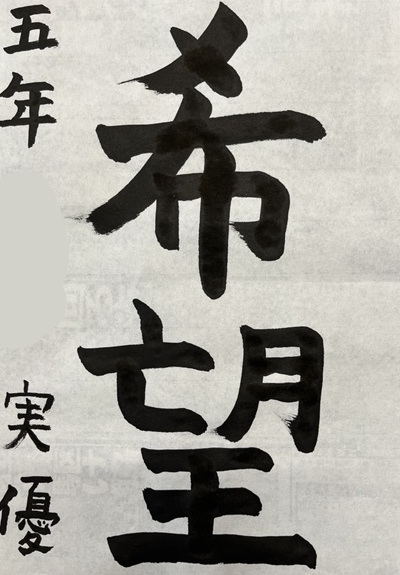 希望
五年
実優